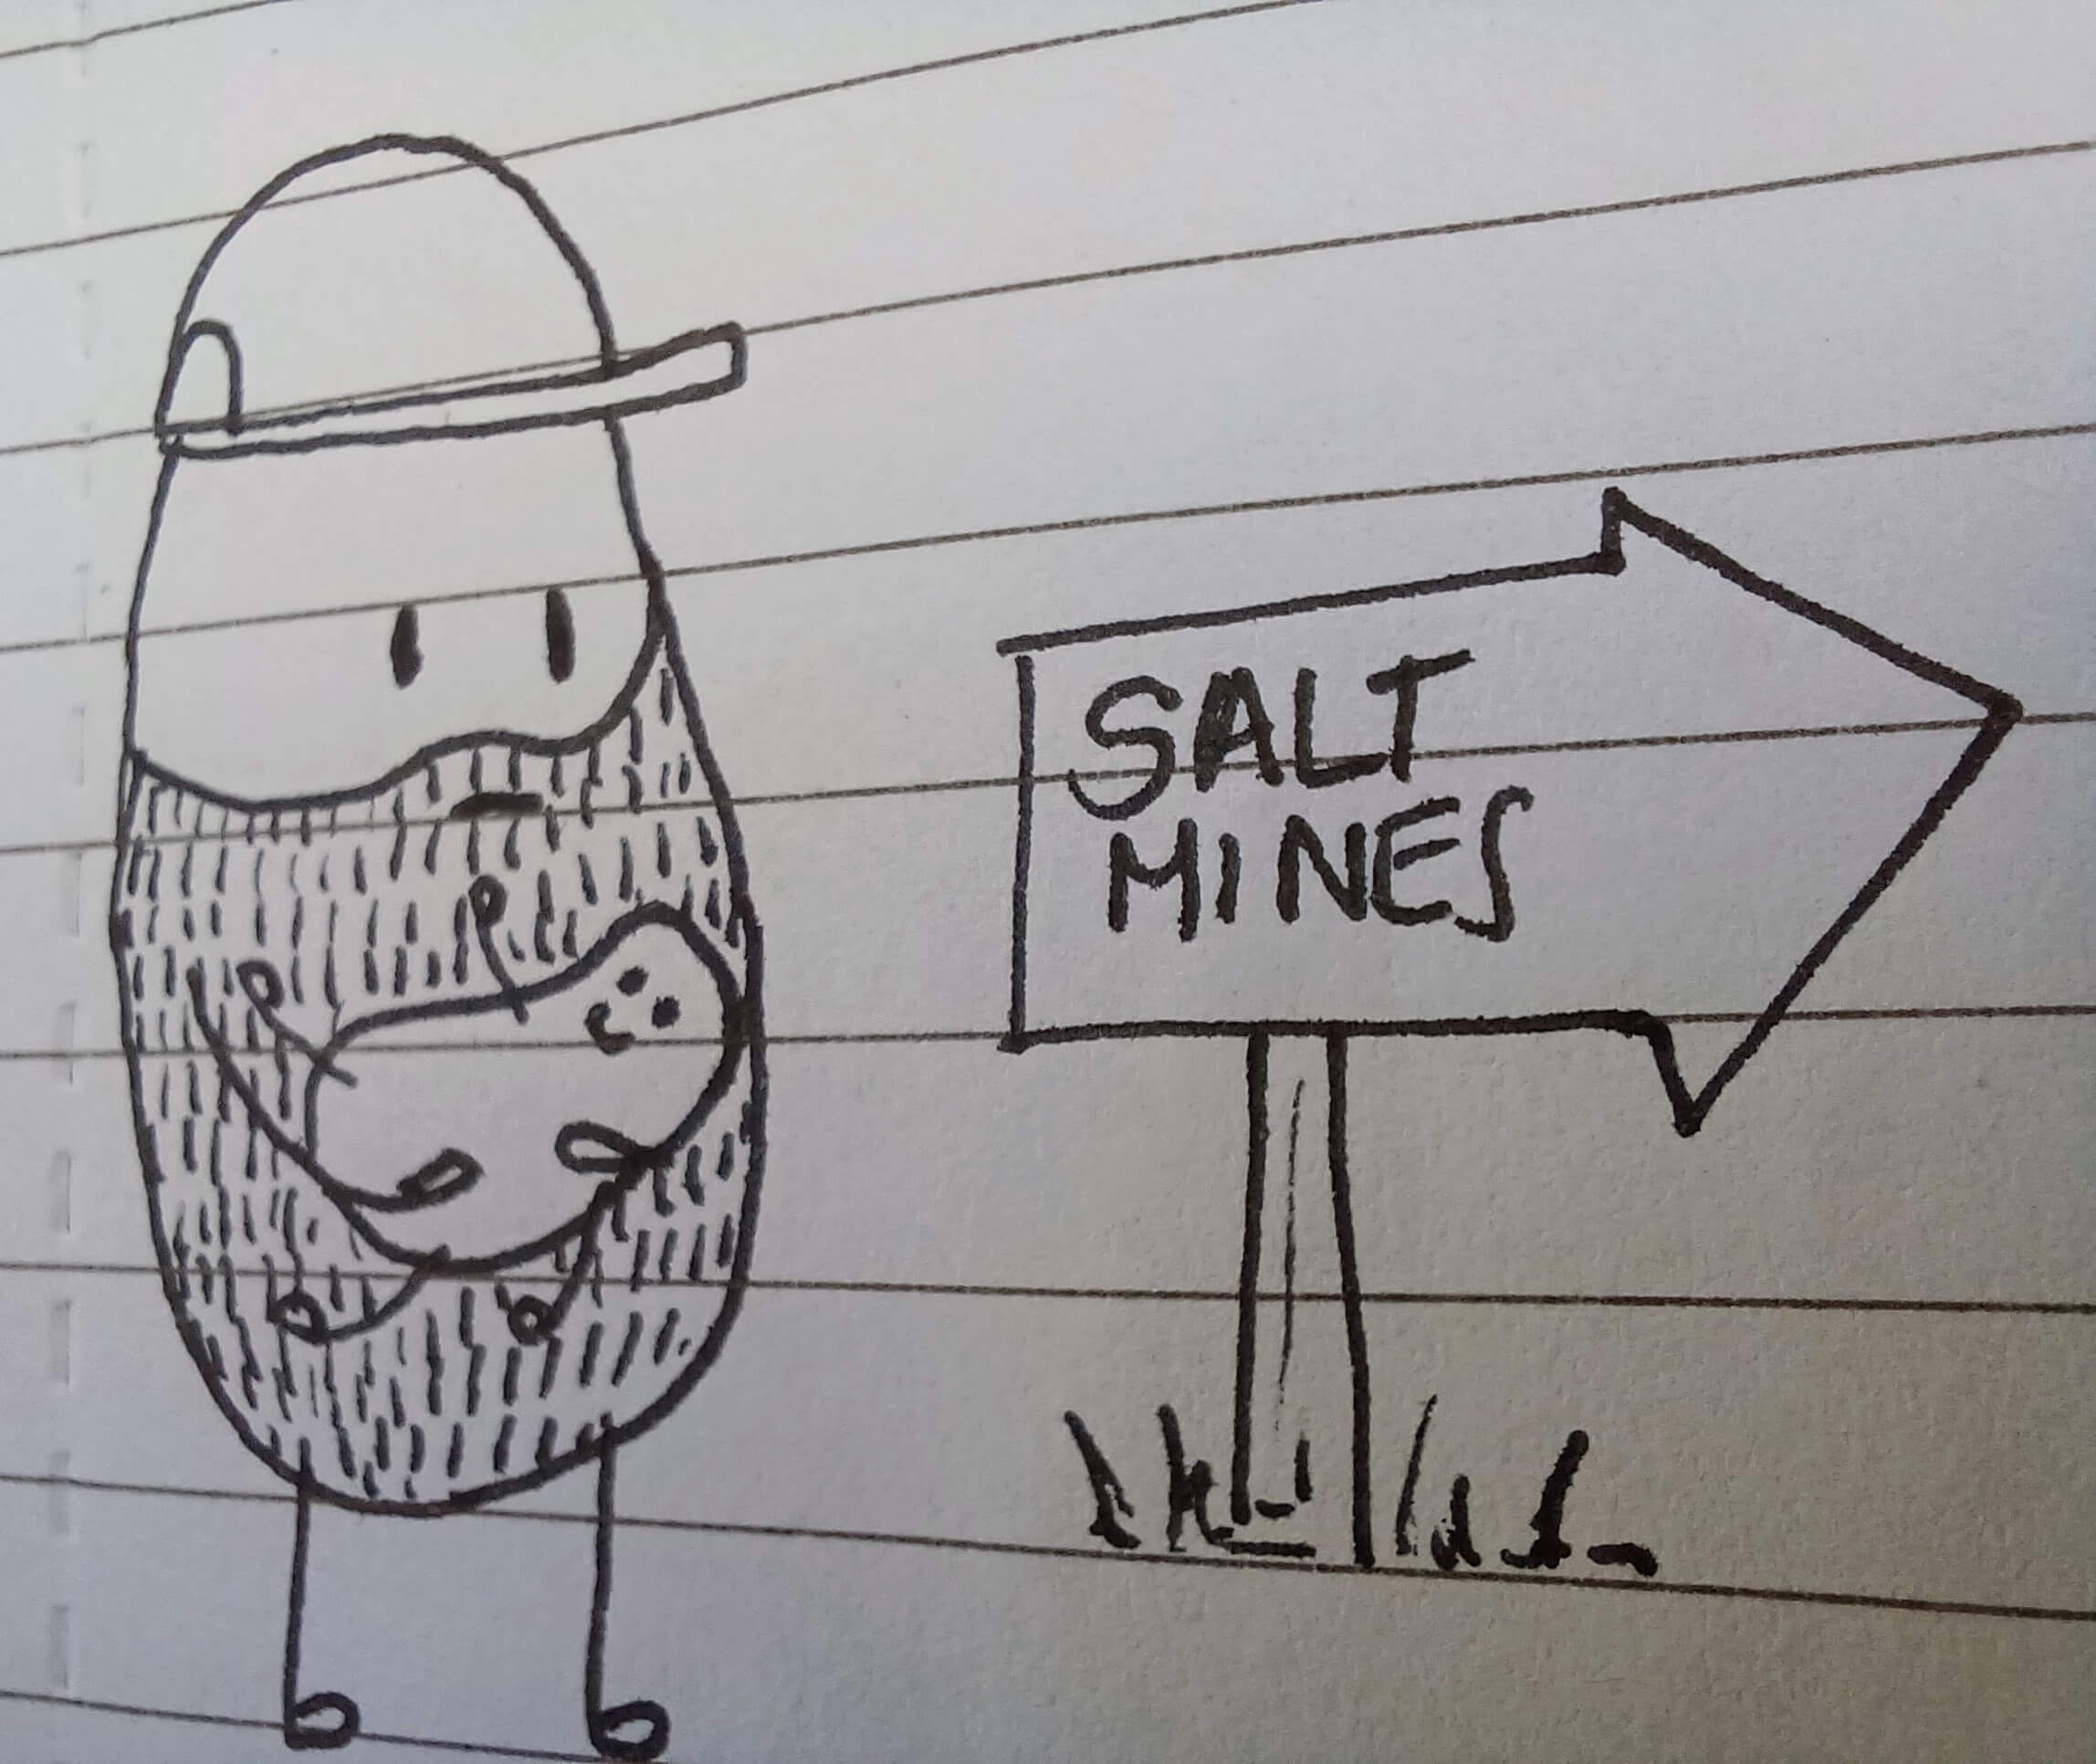 SALT
MINES